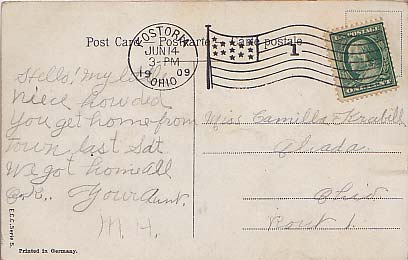 Post Card Postkarte Carte postale
FOSTORIA
JUN 14
3-PM
1909
OHIO
1
Hello! my little
niece how did
you get home from
town last Sat.
We got home all
O.K. Your Aunt.
M. H.
Miss Camilla Krabill
Alvada.
Ohio
Rout 1.
E.E.C. Serie 5.
Printed in Germany.